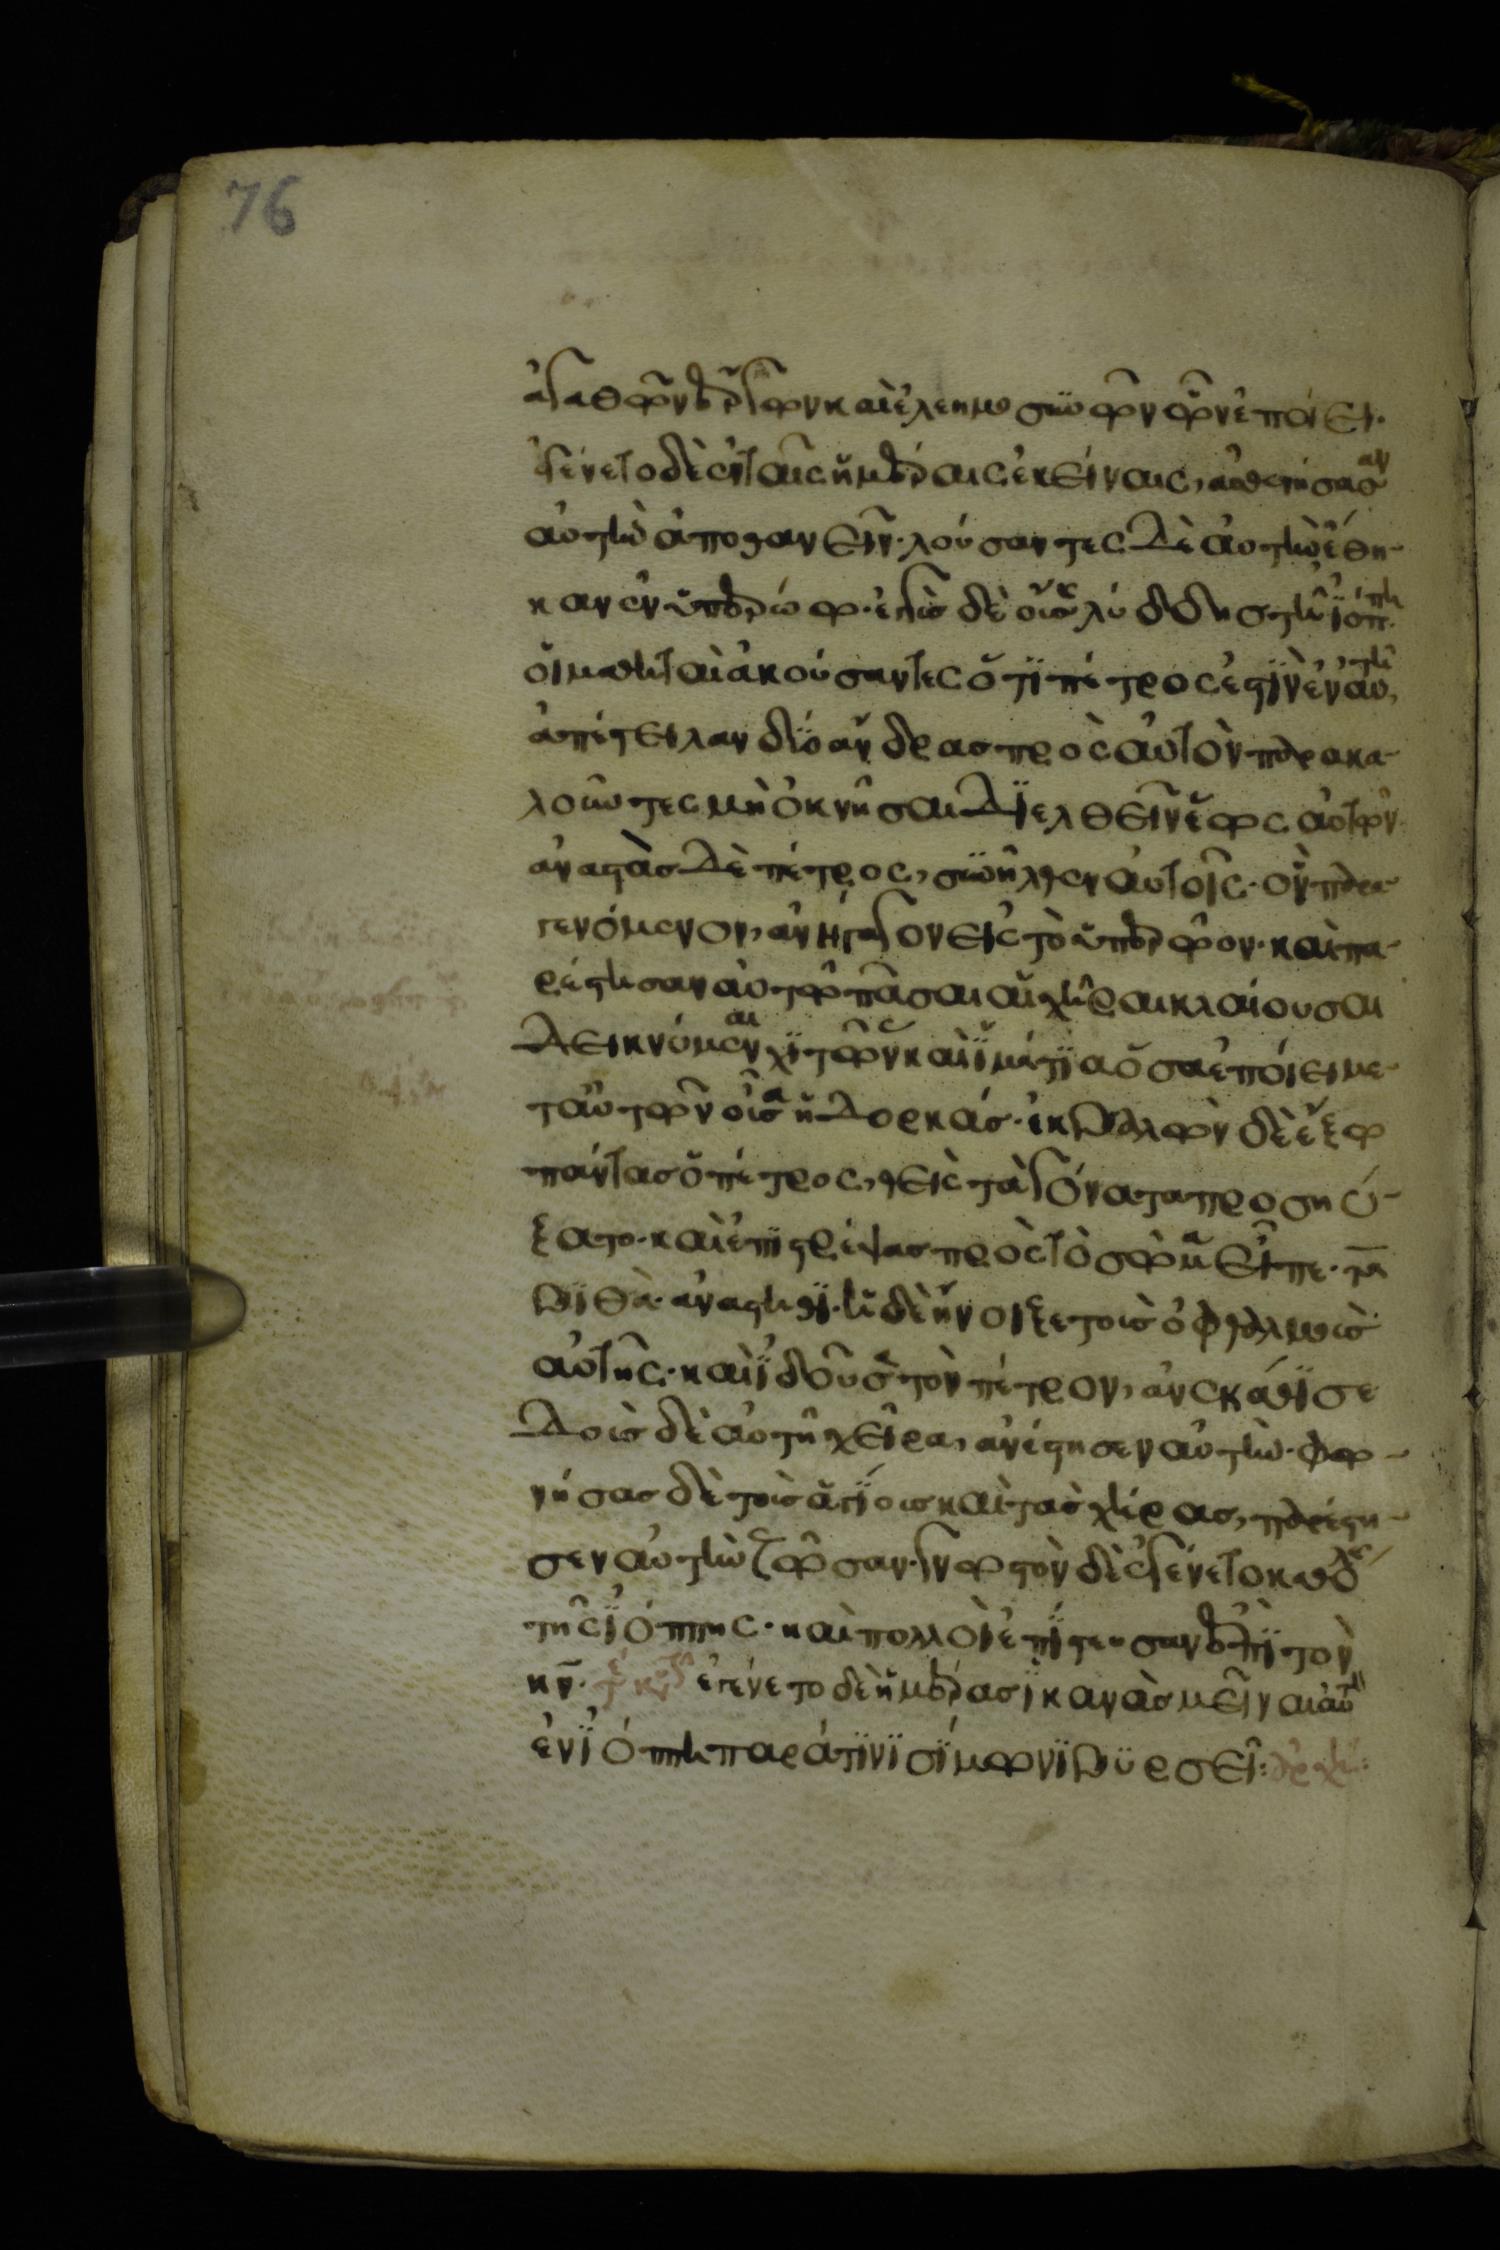 76
ἀγαθῶν ἔργων καὶ ἐλεημοσυνῶν ὧν ἐποίει·
ἐγένετο δὲ ἐν ταῖς ἡμέραις ἐκείναις, ἀσθενήσασαν
αὐτὴν ἀποθανεῖν· λούσαντες δὲ αὐτὴν ἔθη-
καν ἐν ὑπερώω· ἐγγὺς δὲ οὔσης λύδδης τῆ ϊόππη
οἱ μαθηταὶ ἀκούσαντες ὅτι πέτρος ἐστὶν ἐν αὐτῆ,
ἀπέστειλαν δύο ἄνδρας πρὸς αὐτὸν παρακα-
λοῦντες μὴ ὀκνῆσαι διελθεῖν ἕως αὐτῶν·
ἀναστὰς δὲ πέτρος, συνῆλθεν αὐτοῖς· ὃν παρα-
γενόμενον, ἀνήγαγον εἰς τὸ ὑπερῶον· καὶ πα-
ρέστησαν αὐτῶ πᾶσαι αἱ χῆραι κλαίουσαι
δεικνύμεναι χιτῶνας καὶ ἱμάτια ὅσα ἐποίει με-
τ' αὐτῶν οὖσα ἡ δορκάς· ἐκβαλὼν δὲ ἔξω
πάντας ὁ πέτρος, θεὶς τὰ γόνατα προσηύ-
ξατο· καὶ ἐπιστρέψας πρὸς τὸ σῶμα εἶπε· τα
βιθὰ· ἀνάστηθι· ἡ δὲ ἤνοιξε τοὺς ὀφθαλμοὺς
αὐτῆς· καὶ ϊδοῦσα τὸν πέτρον, ἀνεκάθισε
δοὺς δὲ αὐτῆ χεῖρα, ἀνέστησεν αὐτὴν· φω-
νήσας δὲ τοὺς ἁγίους καὶ τὰς χήρας, παρέστη-
σεν αὐτὴν ζῶσαν· γνωστὸν δὲ ἐγένετο καθ' ὅλης
τῆς ϊόππης· καὶ πολλοὶ ἐπίστευσαν ἐπὶ τὸν
κν· ἐγένετο δὲ ἡμέρας ϊκανὰς μεῖναι αὐτὸν
ἐν ϊόππη παρά τινι σίμωνι βυρσεῖ: